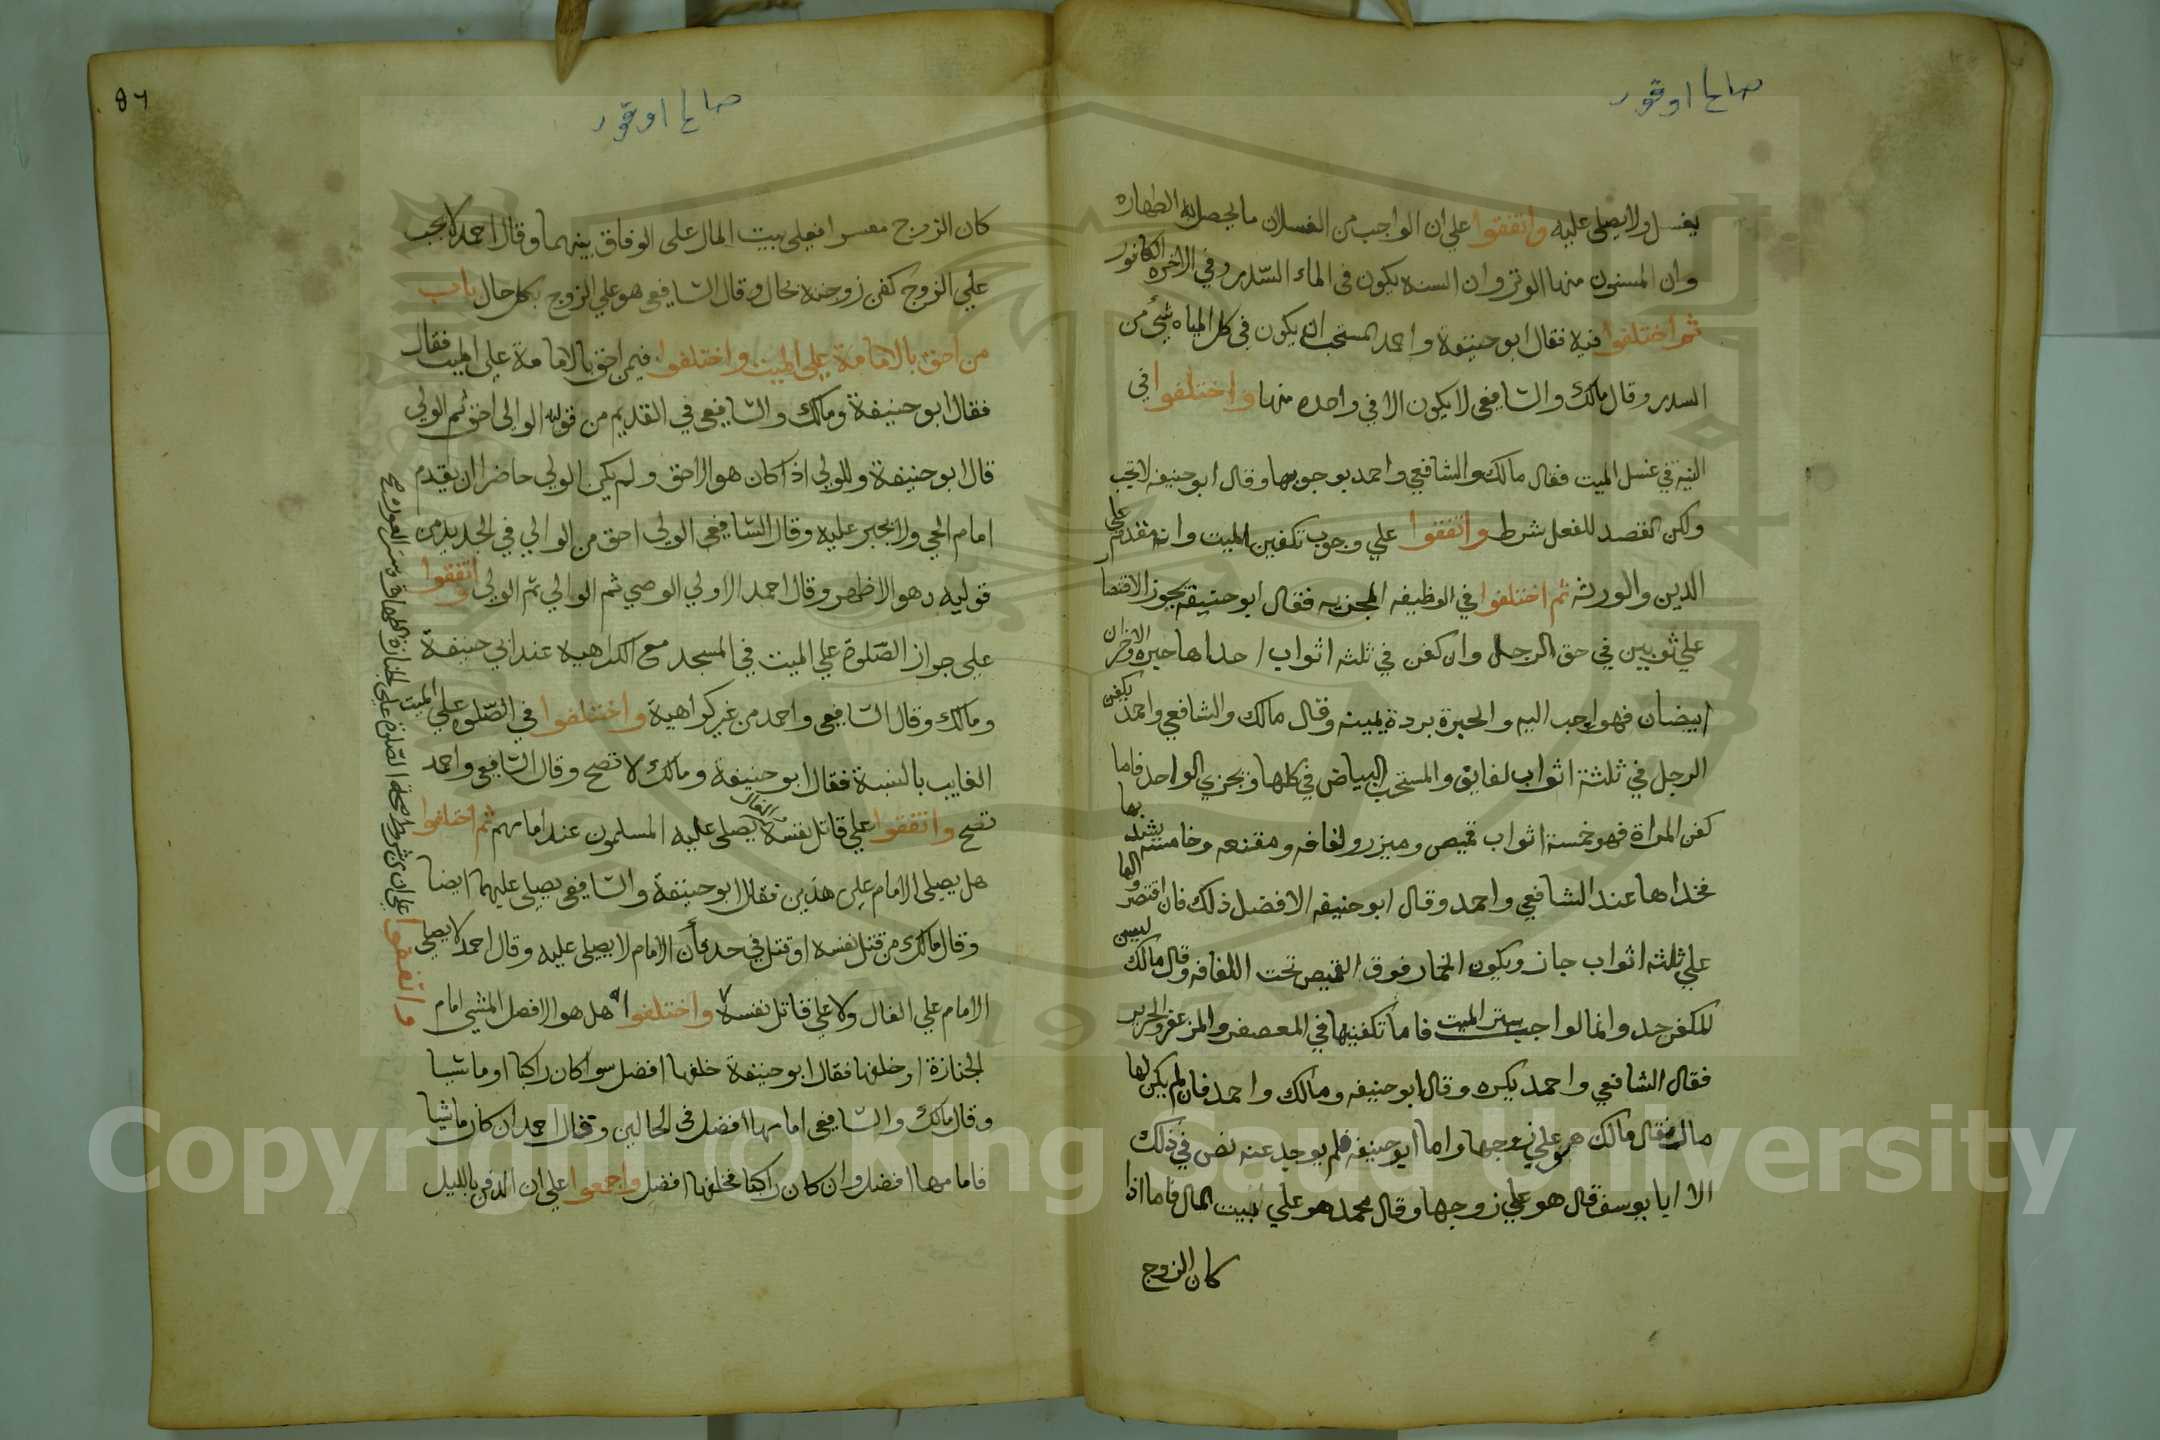 يغسل ولا يصلى عليه واتفقوا على ان الواجب من الغسلات ما يحصل به الطهاره
وان المسنون منها الوتر وان السنه يكون في الماء السدر وفي الاخره الكافور
ثم اختلفوا فيه فقال ابو حنيفة واحمد المستحب ان يكون في كل المياه شئ من
السدر وقال مالك والشافعي لا يكون الا في واحده منها واختلفوا في
النيه في غسل الميت فقال مالك والشافعي واحمد بوجوبها وقال ابو حنيفه لا تجب
ولكن القصد للفعل شرط واتفقوا علي وجوب تكفين الميت وانه مقدم علي
الدين والورثه ثم اختلفوا في الوظيفه المجزيه فقال ابو حنيفه يجوز الاقتصار
علي ثوبين في حق الرجل وان كفن في ثلثه اثواب احداها حبره والاخران
ابيضان فهو احب اليه والحبرة بردة يمينه وقال مالك والشافعي واحمد يكفن
الرجل في ثلثة اثواب لفايف والمستحب البياض في كلها ويجزي الواحد فاما
كفن المراة فهو خمسة اثواب قميص وميزر ولفافه ومقنعه وخامسة يشد بها
فخداها عند الشافعي واحمد وقال ابو حنيفه الافضل ذلك فان اقتصر
علي ثلثه اثواب جاز ويكون الخمار فوق القميص تحت اللفافه وقال مالك ليس
للكفن حد وانما الواجب ستر الميت فاما تكفينها في المعصفر والمزعفر والحرير
فقال الشافعي واحمد يكره وقال ابو حنيفه ومالك واحمد فان لم يكن لها
مال فقال مالك هو علي زوجها واما ابو حنيفه فلم يوجد عنه نص في ذلك
الا ابا يوسف قال هو علي زوجها وقال محمد هو علي بيت المال فاما اذا
كان الزوج
كان الزوج معسرا فعلى بيت المال على الوفاق بينهما وقال احمد لا يجب
علي الزوج كفن زوجته بحال وقال الشافعي هو علي الزوج بكل حال باب
من احق بالامامة علي الميت واختلفوا فيمن احق بالامامة علي الميت فقال
فقال ابو حنيفة ومالك والشافعي في القديم من قوليه الوالي احق ثم الولي
قال ابو حنيفة وللولي اذا كان هو الاحق ولم يكن الولي حاضرا ان يقدم
امام الحي ولا يجبر عليه وقال الشافعي الولي احق من الوالي في الجديد من
قوليه وهو الاظهر وقال احمد الاولي الوصي ثم الوالي ثم الولي واتفقوا
علي جواز الصلوة علي الميت في المسجد مع الكراهية عند ابي حنيفة
ومالك وقال الشافعي واحمد من غير كراهية واختلفوا في الصلوة علي الميت
الغايب بالنية فقال ابو حنيفة ومالك لا تصح وقال الشافعي واحمد
تصح واتفقوا علي قاتل نفسه والغال يصلى عليه المسلمون عند امامهم ثم اختلفوا
هل يصلي الامام على هذين فقال ابو حنيفة والشافعي يصلي عليهما ايضا
وقال مالك من قتل نفسه او قتل في حد فان الامام لا يصلي عليه وقال احمد لا يصلي
الامام علي الغال ولا علي قاتل نفسه واختلفوا هل هو الافضل المشي امام
الجنازة او خلفها فقال ابو حنيفة خلفها افضل سوا كان راكبا او ماشيا
وقال مالك والشافعي امامها افضل في الحالين وقال احمد ان كان ماشيا
فامامها افضل وان كان راكبا فخلفها افضل واجمعوا علي ان الدفن بالليل
واتفقوا علي ان من شروط صحة الصلوة علي الجنازة الطهارة وستر العورة
Copyright © King Saud University
1957